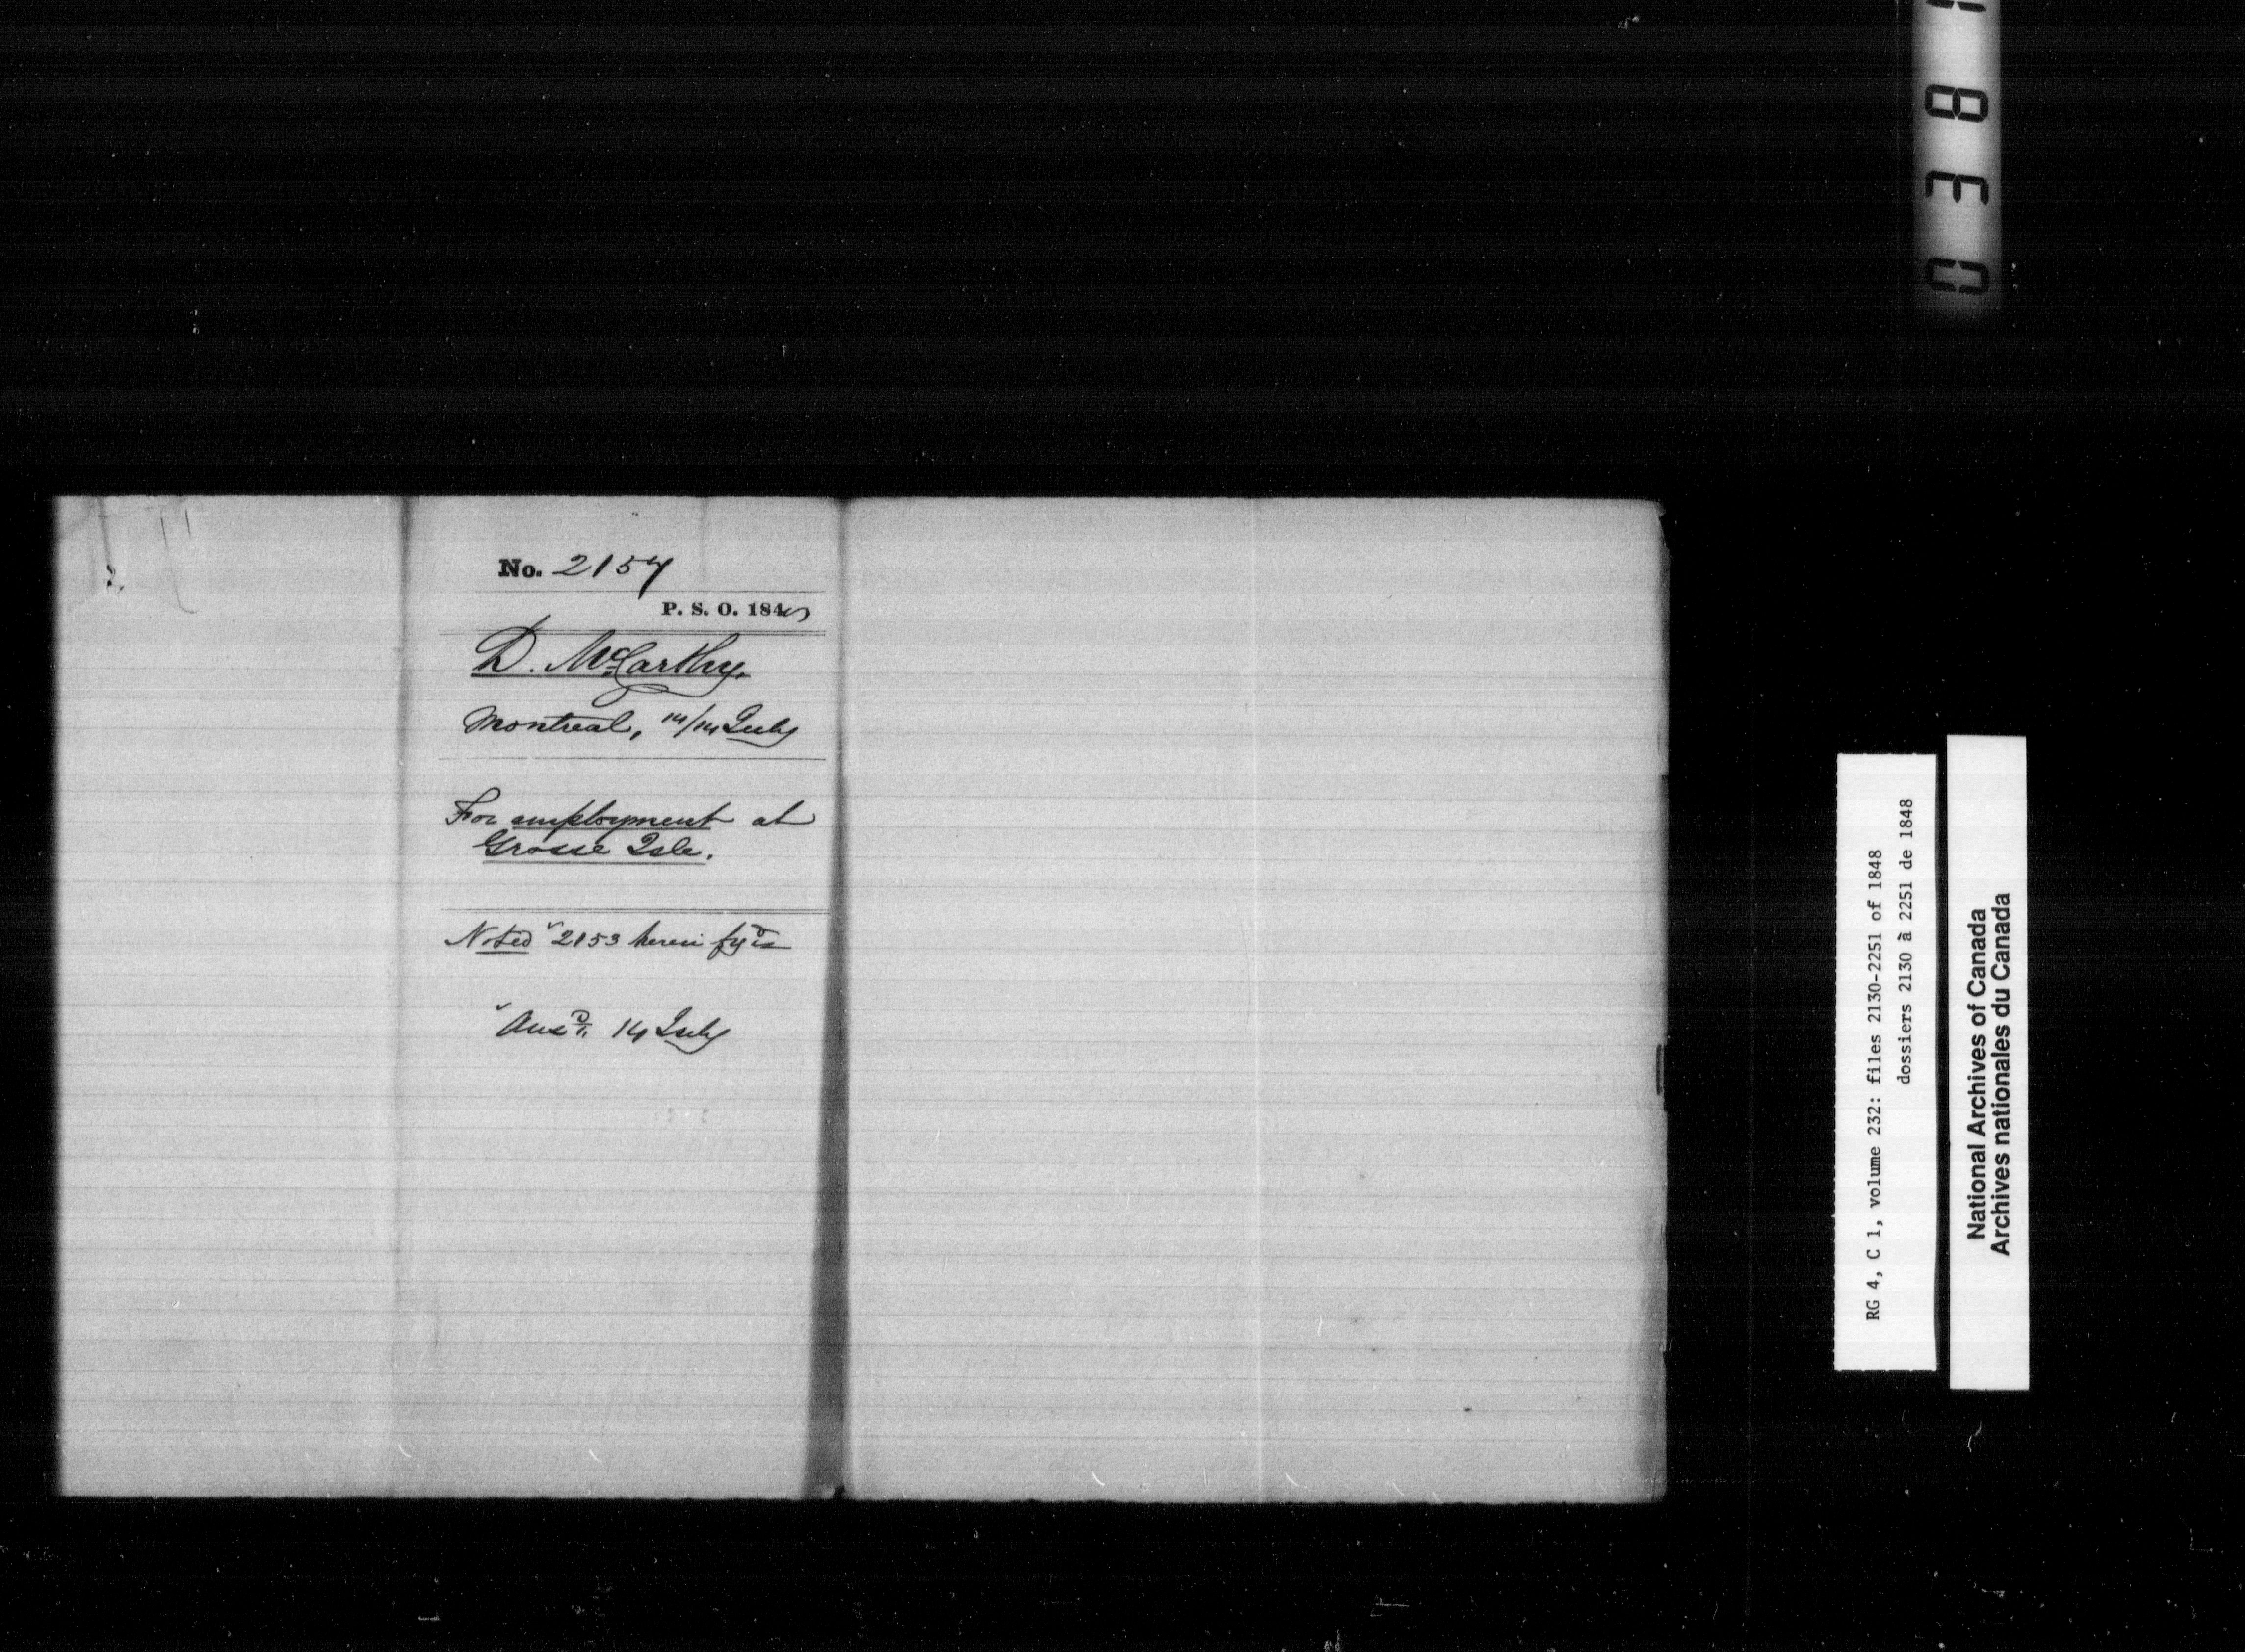 No. 2157
P. S. O. 184
D. McCarthy.
Montreal, 14/14 July
For employment at
Grosse Isle.
Noted 2153 herein
Ansd. 14 July
RG 4, C 1, volume 232: files 2130-2251 of 1848
dossiers 2130 à 2251 de 1848
National Archives of Canada
Archives nationales du Canada
0381